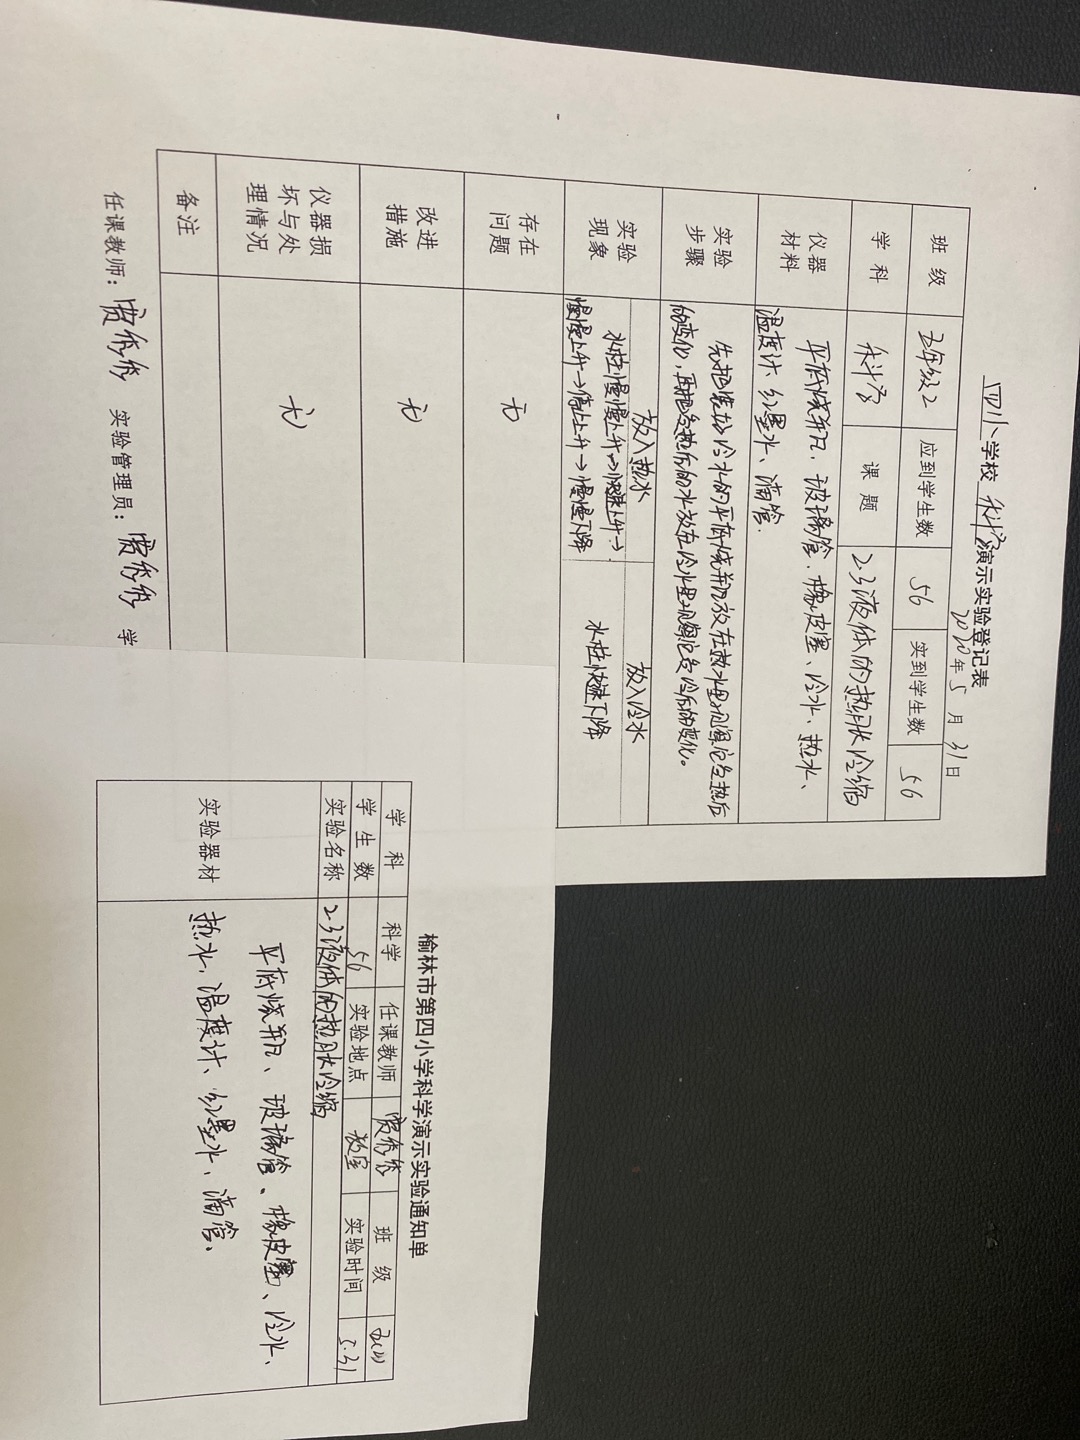 四小学校 科学演示实验登记表
2020年5月31日
班 级 五年级2 应到学生数 56 实到学生数 56
学 科 科学 课 题 2.3液体的热胀冷缩
仪器材料 平底烧瓶、玻璃管、橡皮塞、冷水、热水、
温度计、红墨水、滴管.
实验步骤 先把装的冷水的平底烧瓶放在热水里观察它受热后
的变化,再把受热后的水放在冷水里观察它受冷后的变化。
实验现象 放入热水 放入冷水
水柱慢慢上升→快速上升→ 水柱快速下降
慢慢上升→停止上升→慢慢下降
存在问题 无
改进措施 无
仪器损坏与处理情况 无
备注
任课教师: 贾 实验管理员: 贾 学
榆林市第四小学科学演示实验通知单
学 科 科学 任课教师 贾 班 级
学 生 数 56 实验地点 教室 实验时间 5.31
实验名称 2.3液体的热胀冷缩
实验器材 平底烧瓶、玻璃管、橡皮塞、冷水、
热水、温度计、红墨水、滴管。